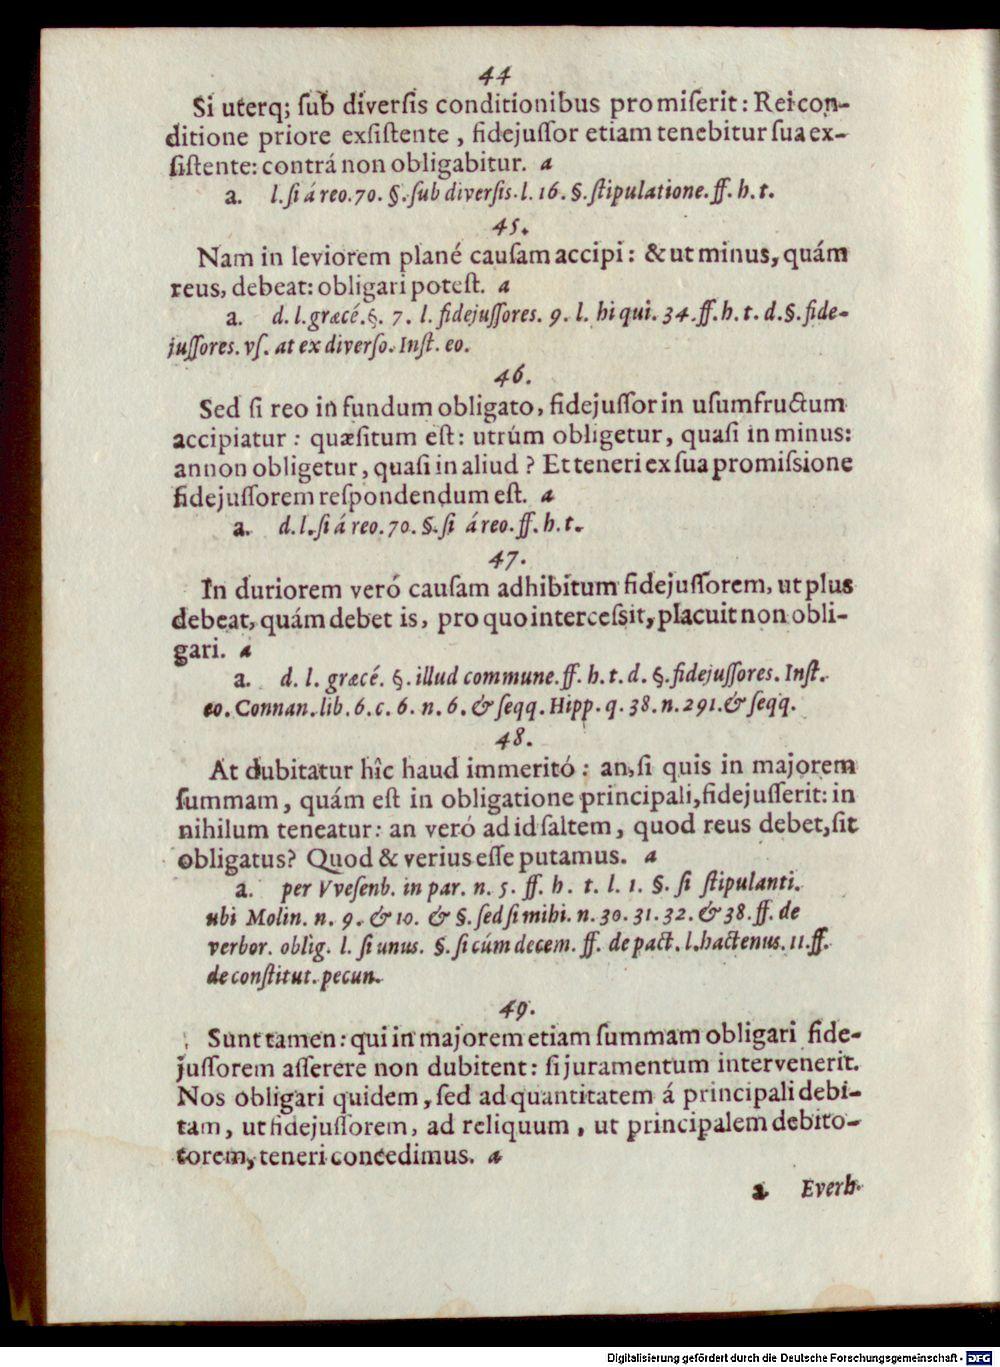 44
Si uterq; ſub diverſis conditionibus promiſerit: Rei con-
ditione priore exſiſtente, fidejuſſor etiam tenebitur ſua ex-
ſiſtente: contrá non obligabitur. a
a. l. ſi á reo. 70. §. ſub diverſis. l. 16. §. ſtipulatione. ff. h. t.
45.
Nam in leviorem plané cauſam accipi: & ut minus, quám
reus, debeat: obligari poteſt. a
a. d. l. græcé. §. 7. l. fidejuſſores. 9. l. hi qui. 34. ff. h. t. d. §. fide-
juſſores. vſ. at ex diverſo. Inſt. eo.
46.
Sed ſi reo in fundum obligato, fidejuſſor in uſumfructum
accipiatur: quæſitum eſt: utrúm obligetur, quaſi in minus:
an non obligetur, quaſi in aliud? Et teneri ex ſua promiſsione
fidejuſſorem reſpondendum eſt. a
a. d. l. ſi á reo. 70. §. ſi á reo. ff. h. t.
47.
In duriorem veró cauſam adhibitum fidejuſſorem, ut plus
debeat, quám debet is, pro quo interceſsit, placuit non obli-
gari. a
a. d. l. græcé. §. illud commune. ff. h. t. d. §. fidejuſſores. Inſt.
eo. Connan. lib. 6. c. 6. n. 6. & ſeqq. Hipp. q. 38. n. 291. & ſeqq.
48.
At dubitatur hîc haud immeritó: an, ſi quis in majorem
ſummam, quám eſt in obligatione principali, fidejuſſerit: in
nihilum teneatur: an veró ad id ſaltem, quod reus debet, ſit
obligatus? Quod & verius eſſe putamus. a
a. per Vveſenb. in par. n. 5. ff. h. t. l. 1. §. ſi ſtipulanti.
ubi Molin. n. 9. & 10. & §. ſed ſi mihi. n. 30. 31. 32. & 38. ff. de
verbor. oblig. l. ſi unus. §. ſi cúm decem. ff. de pact. l. hactenus. 11. ff.
de conſtitut. pecun.
49.
Sunt tamen: qui in majorem etiam ſummam obligari fide-
juſſorem aſſerere non dubitent: ſi juramentum intervenerit.
Nos obligari quidem, ſed ad quantitatem á principali debi-
tam, ut fidejuſſorem, ad reliquum, ut principalem debito-
torem, teneri concedimus. a
a. Everh.
Digitalisierung gefördert durch die Deutsche Forschungsgemeinschaft - DFG